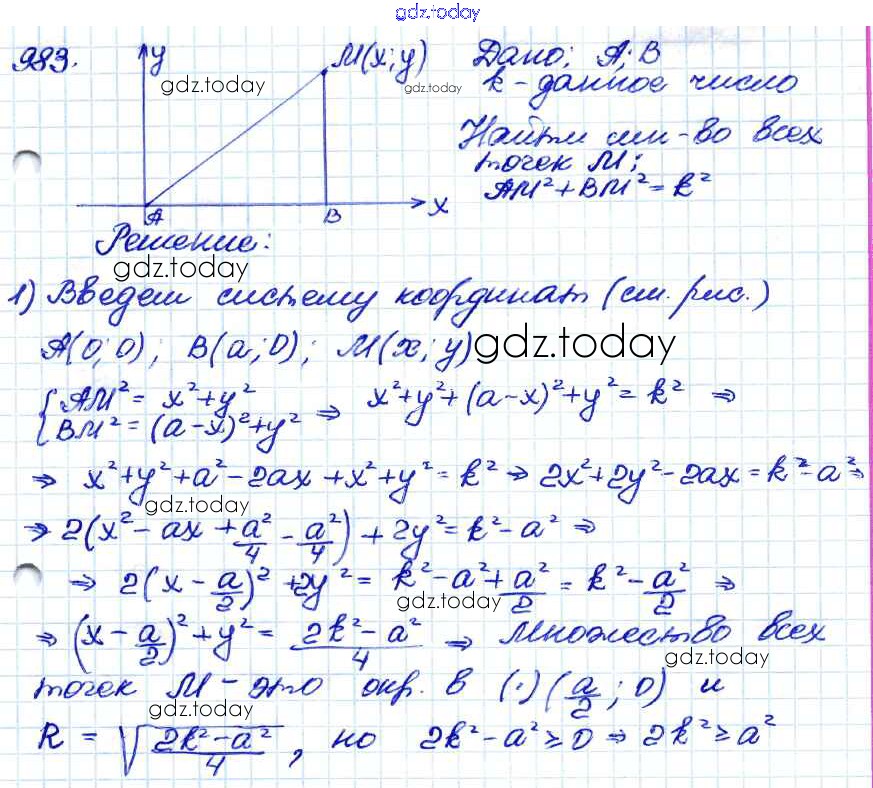 gdz.today
983.
y
M(x;y)
gdz.today
gdz.today
A
B
x
Дано: A; B
k - данное число
Найти мн-во всех
точек M:
AM² + BM² = k²
Решение:
gdz.today
1) Введем систему координат (см. рис.)
A(0;0); B(a;0); M(x;y)
gdz.today
{ AM² = x² + y²
BM² = (a-x)² + y² ⇒ x² + y² + (a-x)² + y² = k² ⇒
⇒ x² + y² + a² - 2ax + x² + y² = k² ⇒ 2x² + 2y² - 2ax = k² - a² ⇒
gdz.today
⇒ 2(x² - ax + a²/4 - a²/4) + 2y² = k² - a² ⇒
⇒ 2(x - a/2)² + 2y² = k² - a² + a²/2 = k² - a²/2 ⇒
gdz.today
⇒ (x - a/2)² + y² = (2k² - a²)/4 ⇒ Множество всех
gdz.today
точек M - это окр. в (·) (a/2; 0) и
gdz.today
R = √((2k² - a²)/4), но 2k² - a² ≥ 0 ⇒ 2k² ≥ a²